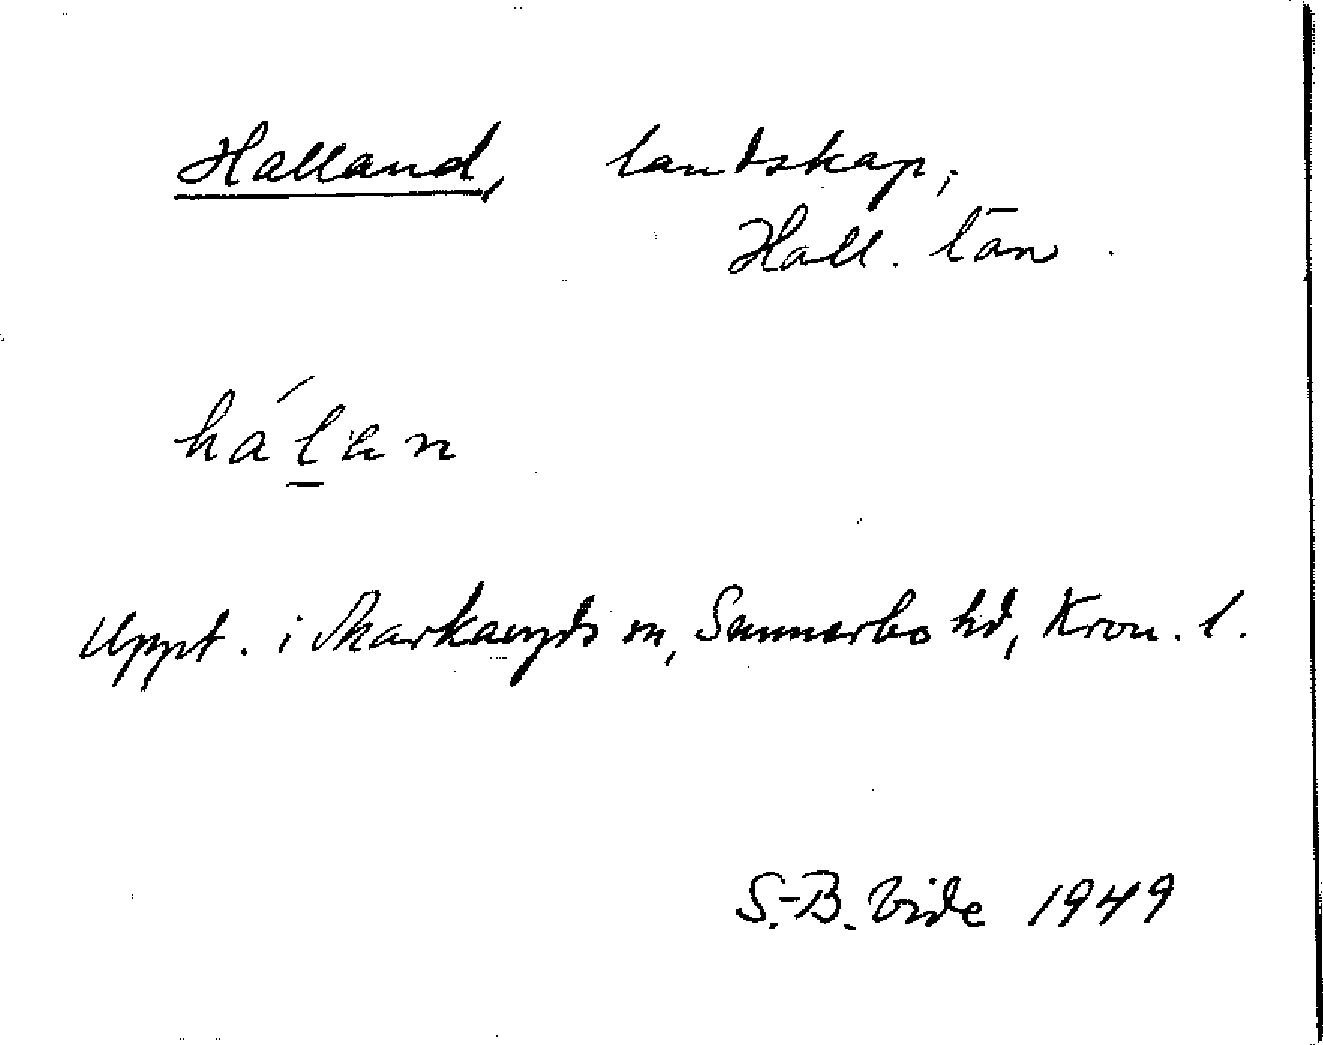 Halland, landskap,
Hall. län.
há́lan
Uppt. i Markaryds sn, Sunnerbo hd, Kron. l.
S.-B. Vide 1949